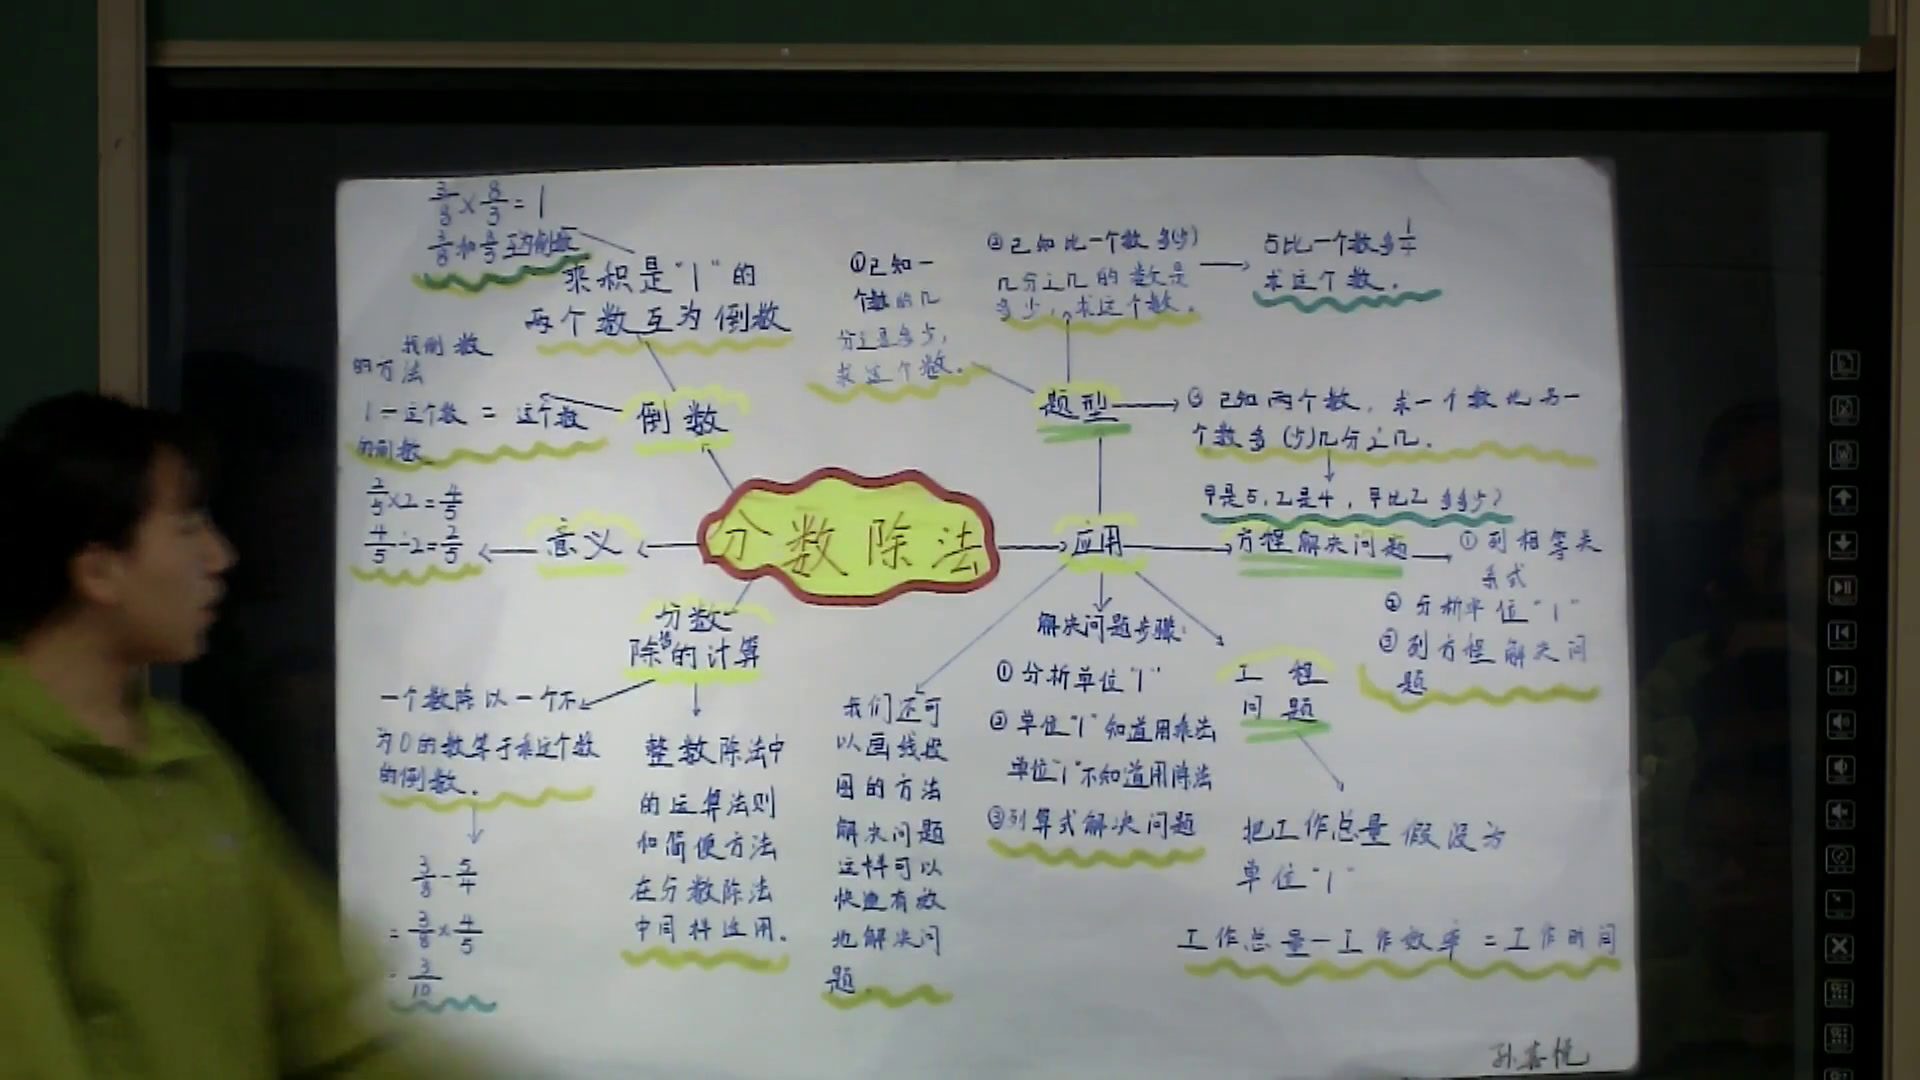 3/8×8/3=1
3/8和8/3互为倒数
乘积是"1"的
两个数互为倒数
找倒数
的方法
1-这个数=这个数
的倒数
倒数
2/5×2=4/5
4/5÷2=2/5
意义
分数除法
分数
除法的计算
一个数除以一个不
为0的数等于乘这个数
的倒数.
3/8-5/4
=3/8×4/5
3/10
整数除法中
的运算法则
和简便方法
在分数除法
中同样适用.
①已知一
个数的几
分之几是多少,
求这个数.
②已知比一个数多(少)
几分之几的数是
多少,求这个数.
5比一个数多1/4
求这个数.
题型
③已知两个数,求一个数比另一
个数多(少)几分之几.
甲是5,乙是4,甲比乙多多少?
应用
方程解决问题
①列相等关
系式
②分析单位"1"
③列方程解决问
题
解决问题步骤:
①分析单位"1"
②单位"1"知道用乘法
单位"1"不知道用除法
③列算式解决问题
我们还可
以画线段
图的方法
解决问题
这样可以
快速有效
地解决问
题.
工程
问题
把工作总量假设为
单位"1"
工作总量-工作效率=工作时间